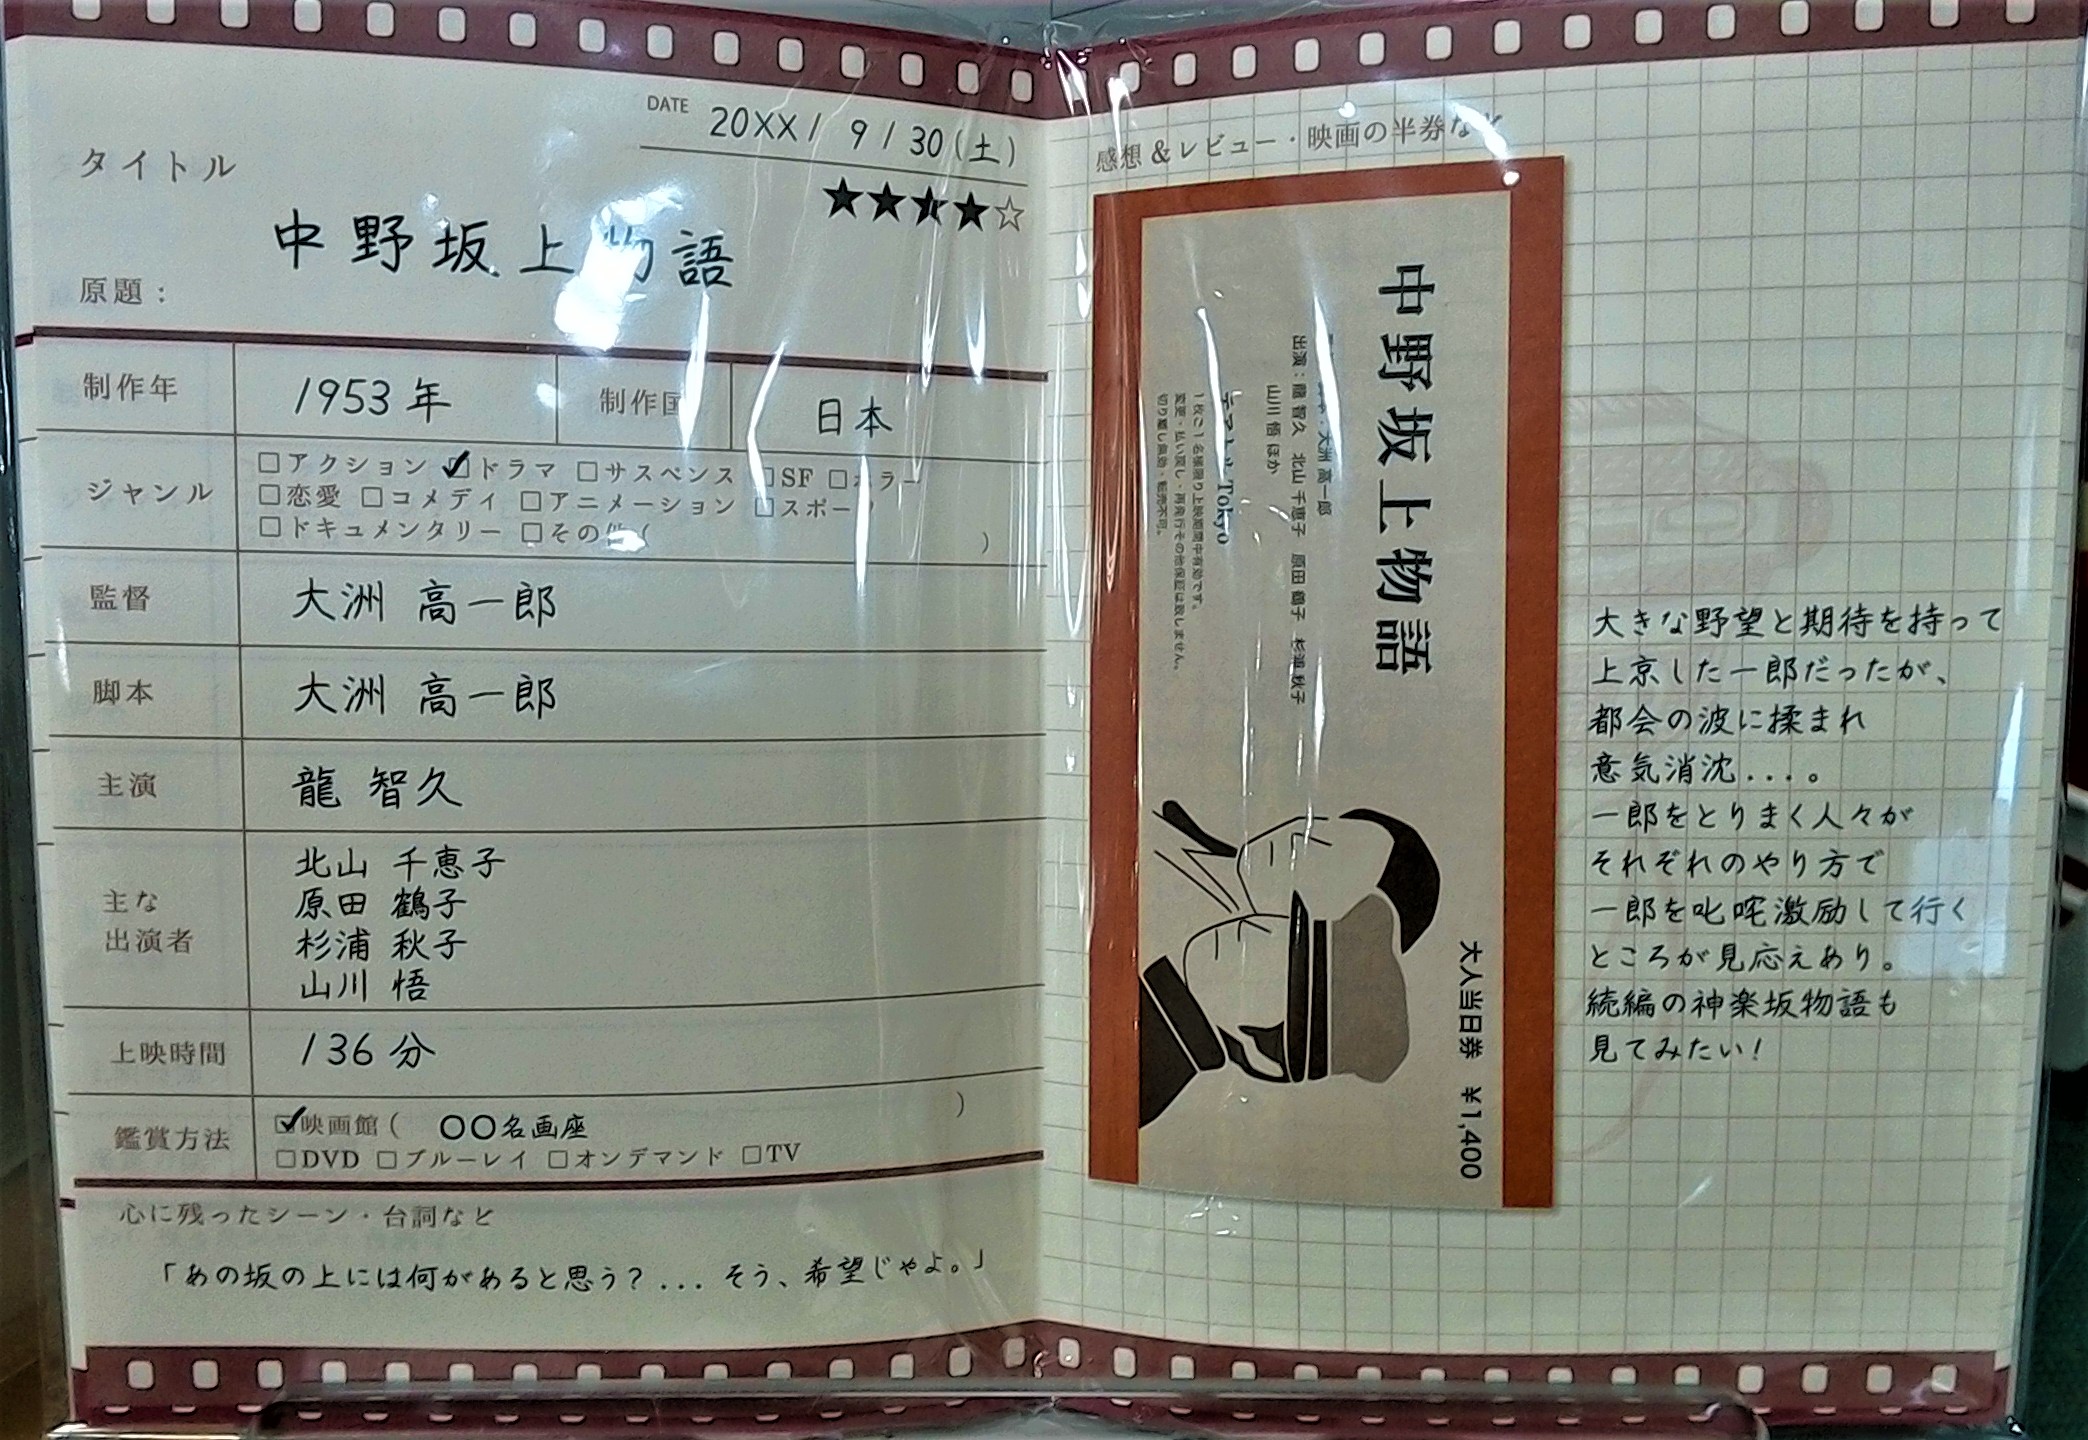 DATE 20XX / 9 / 30 (土)
タイトル
★★★★☆
中野坂上物語
原題：
制作年 1953年 制作国 日本
ジャンル
□アクション ☑ドラマ □サスペンス □SF □ホラー
□恋愛 □コメディ □アニメーション □スポーツ
□ドキュメンタリー □その他（ ）
監督 大洲 高一郎
脚本 大洲 高一郎
主演 龍 智久
主な
出演者
北山 千恵子
原田 鶴子
杉浦 秋子
山川 悟
上映時間 136分
鑑賞方法
☑映画館（ 〇〇名画座 ）
□DVD □ブルーレイ □オンデマンド □TV
心に残ったシーン・台詞など
「あの坂の上には何があると思う？... そう、希望じゃよ。」
感想＆レビュー・映画の半券など
中野坂上物語
大洲 高一郎
出演：龍 智久 北山 千恵子 原田 鶴子 杉浦 秋子
山川 悟 ほか
Tokyo
1枚ご1名様限り上映期間中有効です。
変更・払い戻し・再発行その他保証は致しません。
切り離し無効・転売不可。
大人当日券 ¥1,400
大きな野望と期待を持って
上京した一郎だったが、
都会の波に揉まれ
意気消沈...。
一郎をとりまく人々が
それぞれのやり方で
一郎を叱咤激励して行く
ところが見応えあり。
続編の神楽坂物語も
見てみたい！